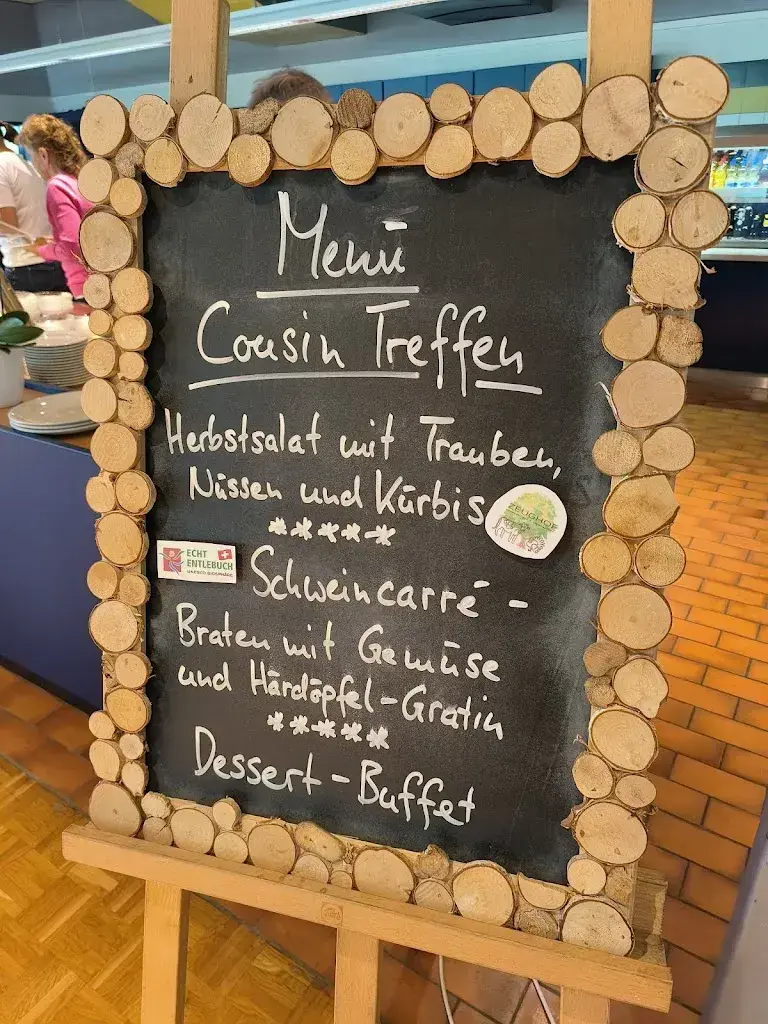 Menü
Cousin Treffen
Herbstsalat mit Trauben,
Nüssen und Kürbis
*****
ZEUGHOF
ECHT
ENTLEBUCH
UNESCO BIOSPHÄRE
Schweincarré -
Braten mit Gemüse
und Härdöpfel-Gratin
*****
Dessert-Buffet